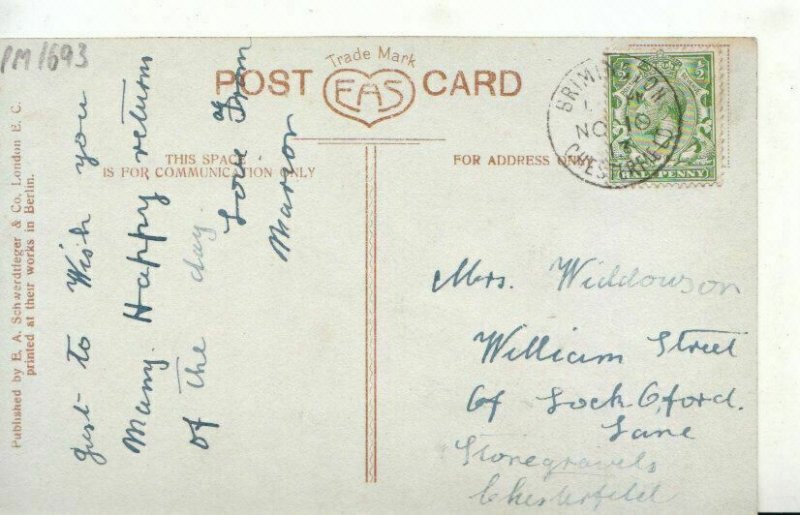 PM1693
Trade Mark
POST EAS CARD
THIS SPACE
IS FOR COMMUNICATION ONLY
FOR ADDRESS ONLY
Published by E. A. Schwerdtfeger & Co., London E. C.
printed at their works in Berlin.
just to Wish you
Many Happy returns
of the day.
Love From
Marion
BRIMINGTON
NO 10
13
CHESTERFIELD
PENNY
Mrs. Widdowson
William Street
of Lockoford.
Lane
Stonegravels
Chesterfield